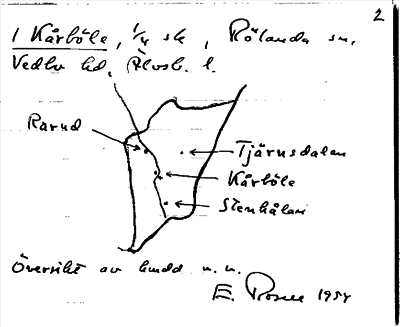 2
1 Kårböle, 1/4 sk, Rölanda sn,
Vedbo hd, Älvsb. l.
Rarud
Tjärnsdalen
Kårböle
Stenhålan
Översikt av hudd n. n.
E. Rosell 1954